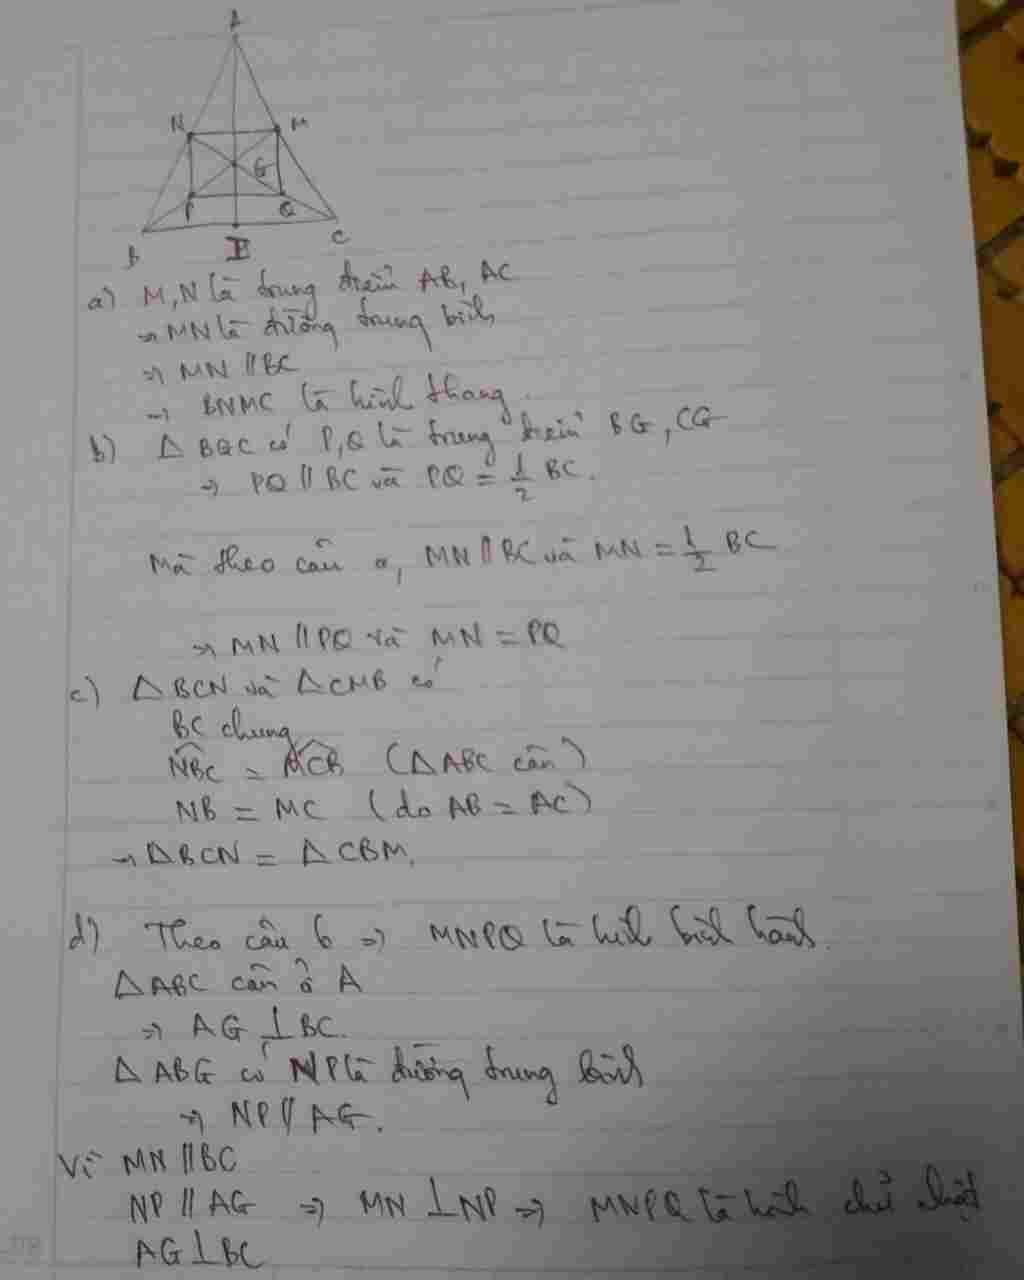 A
N
M
G
P
Q
B
E
C
a) M,N là trung điểm AB, AC
→ MN là đường trung bình
⇒ MN // BC
→ BNMC là hình thang.
b) △ BGC có P,Q là trung điểm BG, CG
⇒ PQ // BC và PQ = 1/2 BC.
Mà theo câu a, MN // BC và MN = 1/2 BC
⇒ MN // PQ và MN = PQ
c) △BCN và △CMB có
BC chung
NBC = MCB (△ABC cân)
NB = MC (do AB = AC)
→ △BCN = △CBM.
d) Theo câu b ⇒ MNPQ là hình bình hành.
△ABC cân ở A
⇒ AG ⊥ BC.
△ ABG có NP là đường trung bình
⇒ NP // AG.
Vì MN // BC
NP // AG ⇒ MN ⊥ NP ⇒ MNPQ là hình chữ nhật
AG ⊥ BC